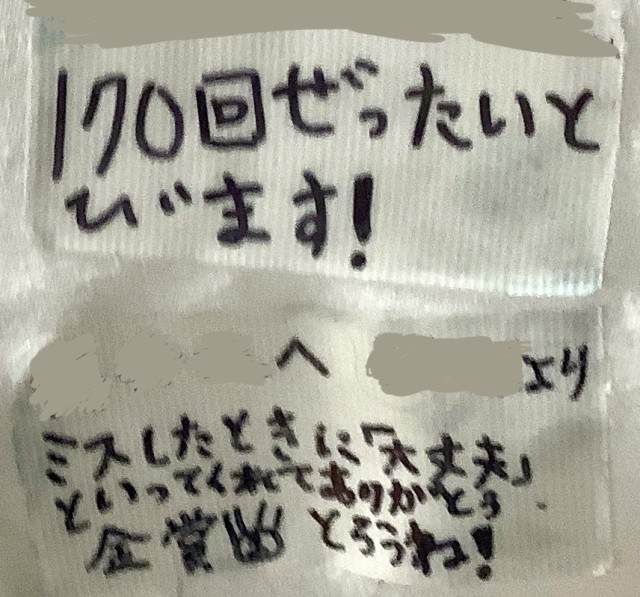 170回ぜったいと
びます!
へ より
ミスしたときに「大丈夫」
といってくれてありがとう
金賞 とろうね!